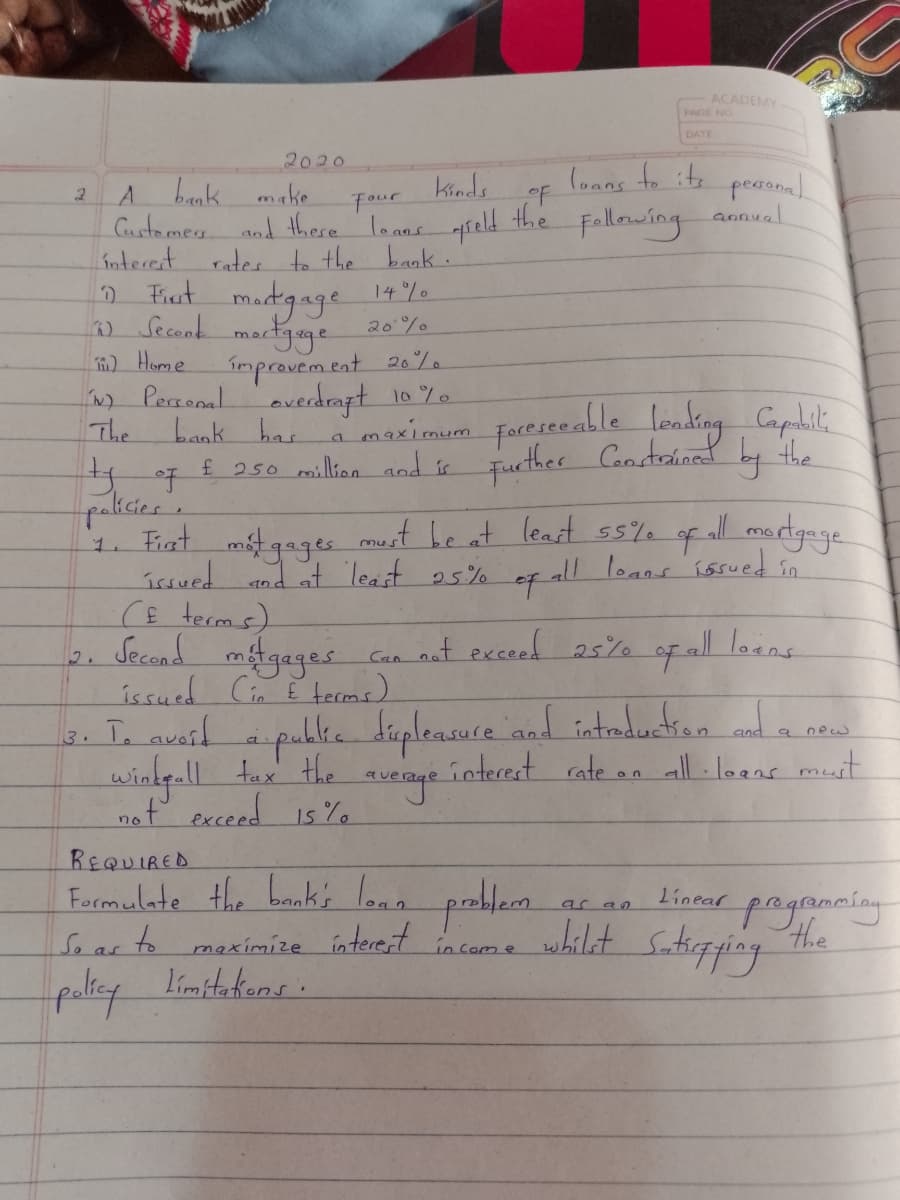 ACADEMY
PAGE NO
DATE
2020
2 A bank make Four kinds of loans to its personal
Customers and these loans yield the Following annual
interest rates to the bank.
i) First mortgage 14%
ii) Second mortgage 20%
iii) Home improvement 20%
iv) Personal overdraft 10%
The bank has a maximum foreseeable lending Capabili
ty of £ 250 million and is further Constrained by the
policies.
1. First mortgages must be at least 55% of all mortgage
issued and at least 25% of all loans issued in
(£ terms)
2. Second mortgages can not exceed 25% of all loans
issued (in £ terms)
3. To avoid a public displeasure and introduction and a new
windfall tax the average interest rate on all loans must
not exceed 15%
REQUIRED
Formulate the bank's loan problem as an Linear programming
So as to maximize interest income whilst Satisfying the
policy limitations.